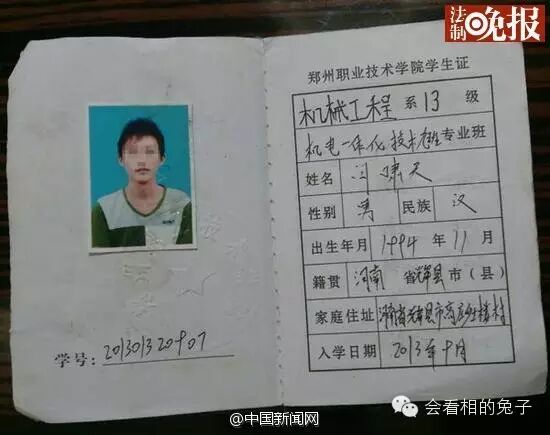 法制晚报
郑州职业技术学院学生证
机械工程 系 13 级
机电一体化技术 专业班
姓名 闫啸天
性别 男 民族 汉
出生年月 1994 年 11 月
籍贯 河南 省 辉县 市（县）
家庭住址 河南省辉县市高庄 村
入学日期 2013年9月
学号：201301320907
@中国新闻网
会看相的兔子